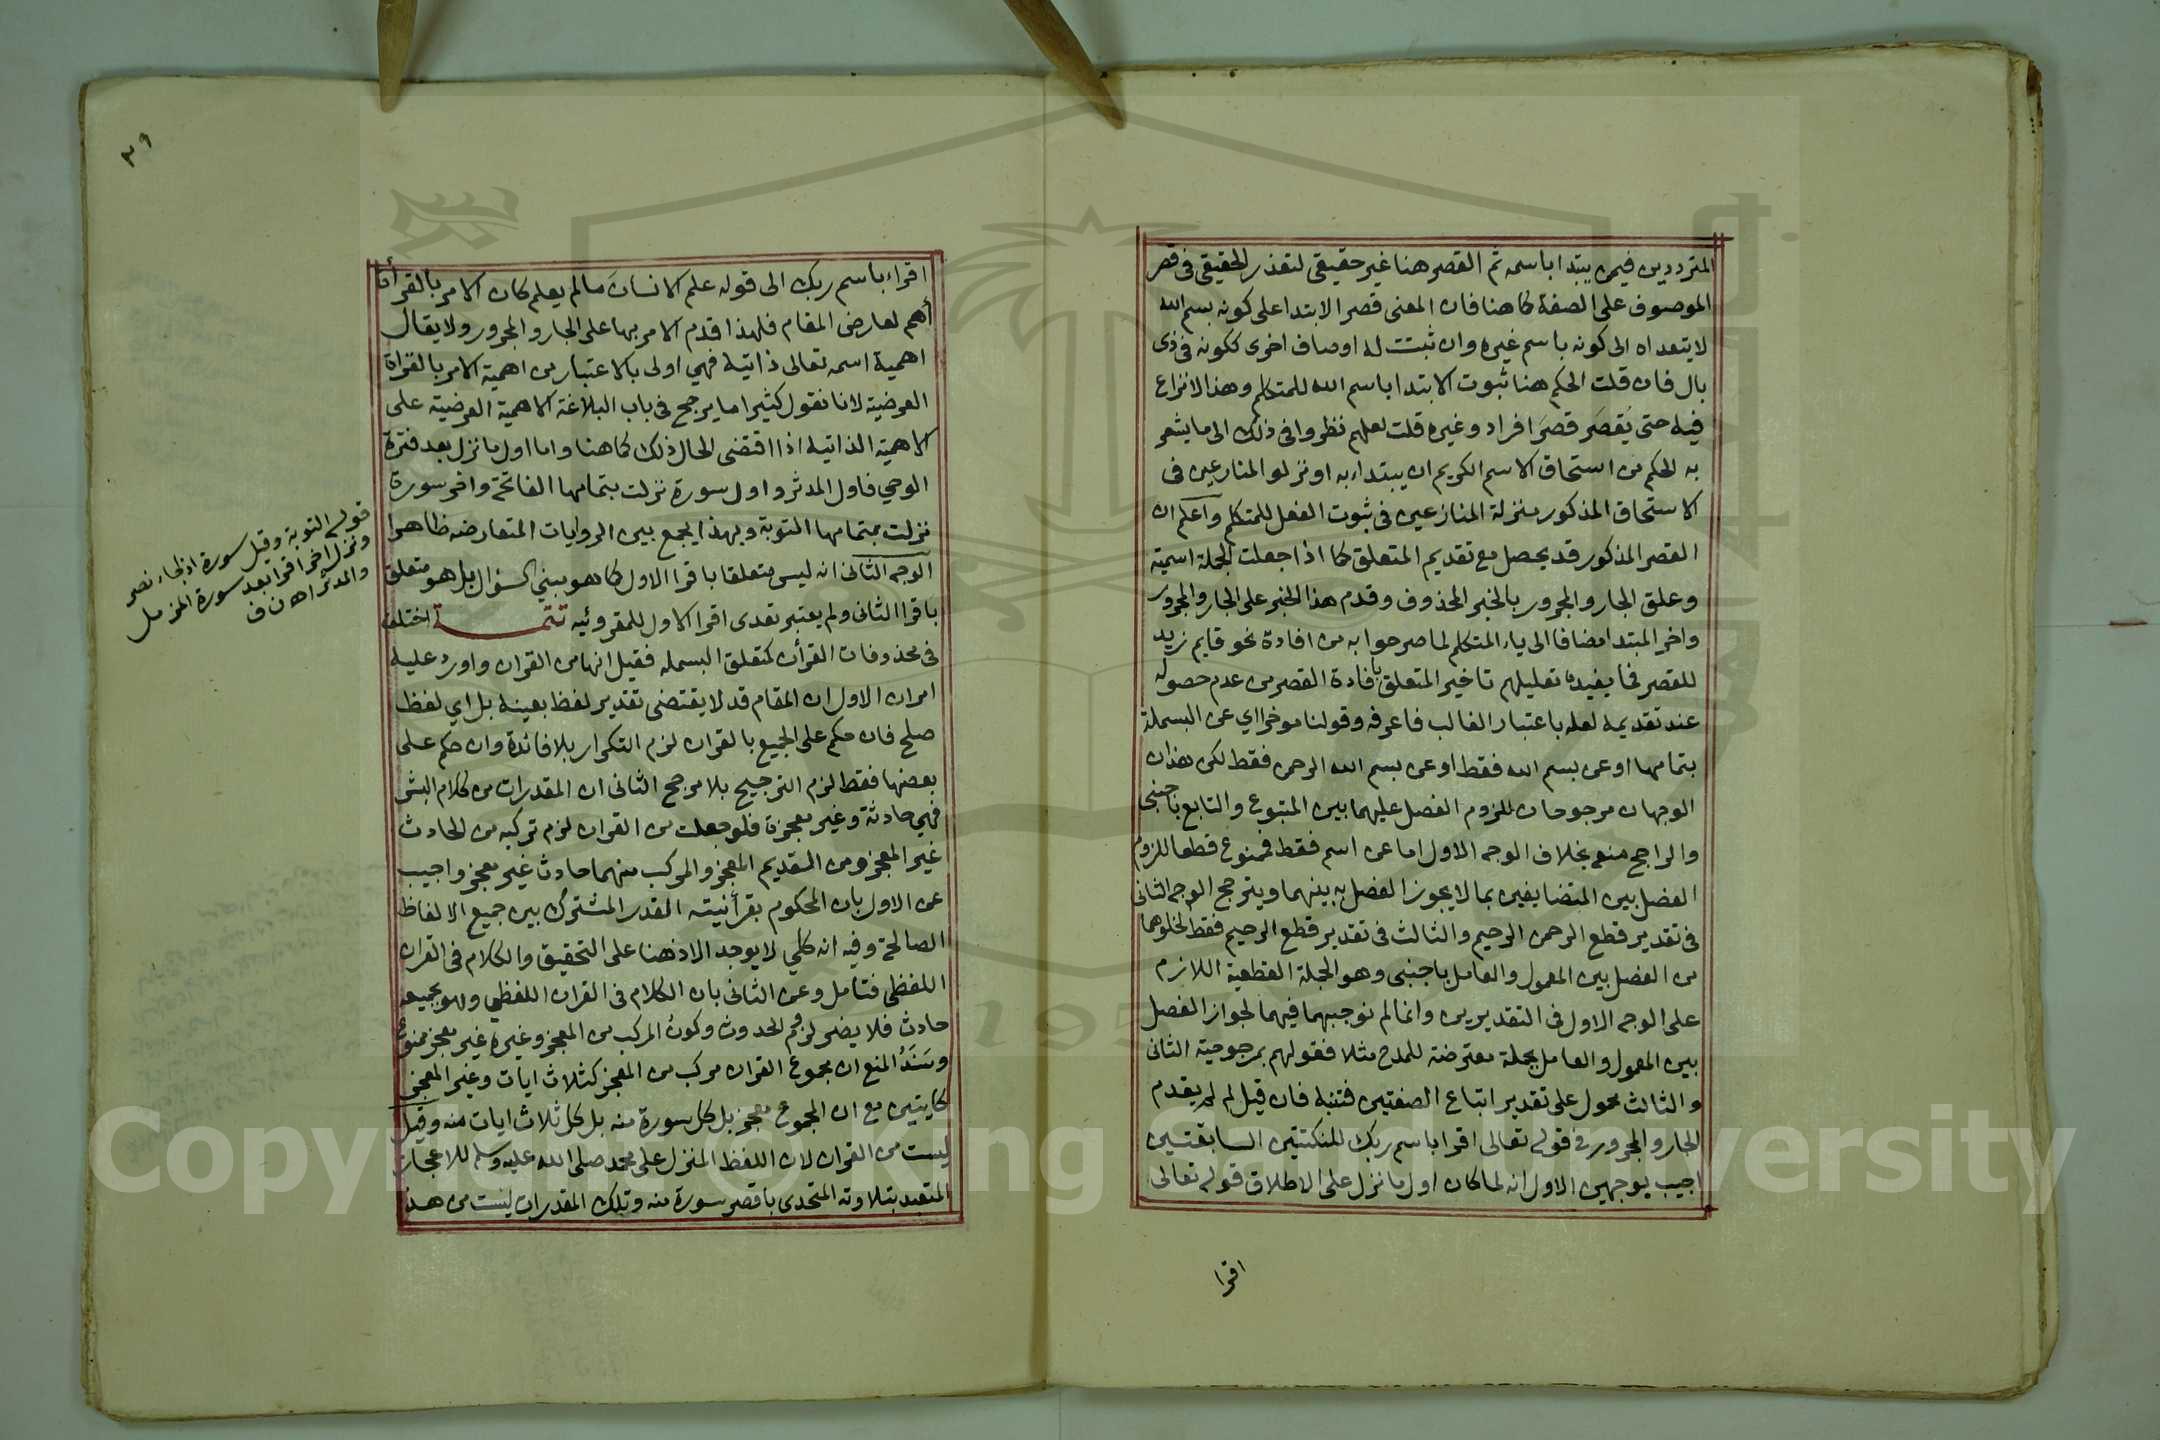 المترددين فيمن يبتدا باسمه ثم القصر هنا غير حقيقي لتعذر الحقيقي في قصر
الموصوف على الصفة كما هنا فان المعنى قصر الابتدا على كونه بسم الله
لا يتعداه الى كونه باسم غيره وان ثبتت له اوصاف اخرى ككونه في ذى
بال فان قلت الحكم هنا ثبوت الابتدا باسم الله للمتكلم وهذا لا نزاع
فيه حتى يُقصَر قصرَ افراد وغيره قلت لعلهم نظروا في ذلك الى ما يشعر
به الحكم من استحاق الاسم الكريم ان يبتداء به او نزلوا المنازعين في
الاستحاق المذكور منزلة المنازعين في ثبوت الفعل للمتكلم واعلم ان
القصر المذكور قد يحصل مع تقديم المتعلق كما اذا جعلت الجملة اسمية
وعلق الجار والمجرور بالخبر المحذوف وقدم هذا الخبر على الجار والمجرور
واخر المبتدا مضافا الى ياء المتكلم لما صرحوا به من افادة نحو قايم زيد
للقصر فما يفيده تعليلهم تاخير المتعلق بافادة القصر من عدم حصوله
عند تقديمه لعله باعتبار الغالب فاعرفه وقولنا موخرا اي عن البسملة
بتمامها او عن بسم الله فقط او عن بسم الله الرحمن فقط لكن هذان
الوجهان مرجوحان للزوم الفصل عليهما بين المتبوع والتابع باجنبي
والراجح منعه بخلاف الوجه الاول اما عن اسم فقط فممنوع قطعا للزوم
الفصل بين المتضايفين بما لا يجوز الفصل به بينهما ويترجح الوجه الثانى
في تقدير قطع الرحمن الرحيم والثالث في تقدير قطع الرحيم فقط لخلوهما
من الفصل بين المعمول والعامل باجنبي وهو الجملة القطعية اللازم
على الوجه الاول في التقديرين وانما لم نوجبهما فيهما لجواز الفصل
بين المعمول والعامل بجملة معترضة للمدح مثلا فقولهم بمرجوحية الثانى
والثالث محمول على تقدير اتباع الصفتين فتنبه فان قيل لم لم يقدم
الجار والمجرور في قوله تعالى اقرا باسم ربك للنكتتين السابقتين
اجيب بوجهين الاول انه لما كان اول ما نزل على الاطلاق قوله تعالى
اقرا
٣٩
اقراء باسم ربك الى قوله علم الانسان ما لم يعلم كان الامر بالقرأة
أهم لعارض المقام فلهذا قدم الامر بها على الجار والمجرور ولا يقال
اهمية اسمه تعالى ذاتية فهي اولى بالاعتبار من اهمية الامر بالقراة
العرضية لانا نقول كثيرا ما يرجح في باب البلاغة الاهمية العرضية على
الاهمية الذاتية اذا اقتضى الحال ذلك كما هنا واما اول ما نزل بعد فترة
الوحي فاول المدثر واول سورة نزلت بتمامها الفاتحة واخر سورة
نزلت بتمامها التوبة وبهذا يجمع بين الروايات المتعارضه ظاهرا
الوجه الثانى انه ليس متعلقا باقرا الاول كما هو مبني السؤال بل هو متعلق
باقرا الثانى ولم يعتبر تعدى اقرا الاول للمقروئيه تتمة اختلف
في محذوفات القرأن كمتعلق البسمله فقيل انها من القران واورد عليه
امران الاول ان المقام قد لا يقتضى تقدير لفظ بعينه بل اي لفظ
صلح فان حكم على الجميع بالقران لزم التكرار بلا فائدة وان حكم على
بعضها فقط لزم الترجيح بلا مرجح الثانى ان المقدرات من كلام البشر
فهي حادثة وغير معجزة فلو جعلت من القران لزم تركبه من الحادث
غير المعجز ومن القديم المعجز والمركب منهما حادث غير معجز واجيب
عن الاول بان المحكوم بقرأنيته القدر المشترك بين جميع الالفاظ
الصالحة وفيه انه كلي لا يوجد الا ذهنا على التحقيق والكلام في القران
اللفظى فتامل وعن الثانى بان الكلام في القران اللفظي وهو بجميعه
حادث فلا يضر لزوم الحدوث وكونُ المركب من المعجز وغيره غير معجز ممنوع
وسَنَدُ المنع ان مجموع القران مركب من المعجز كثلاث ايات وغير المعجز
كايتين مع ان المجموع معجز بل كل سورة منه بل كل ثلاث ايات منه وقيل
ليست من القران لان اللفظ المنزل على محمد صلى الله عليه وسلم للاعجاز
المتعبد بتلاوته المتحدى باقصر سورة منه وتلك المقدرات ليست من هذا
قوله التوبة وقيل سورة اذا جاء نصر
ونزل اخر اقرا بعد سورة المزمل
والمدثر اهـ ن ف